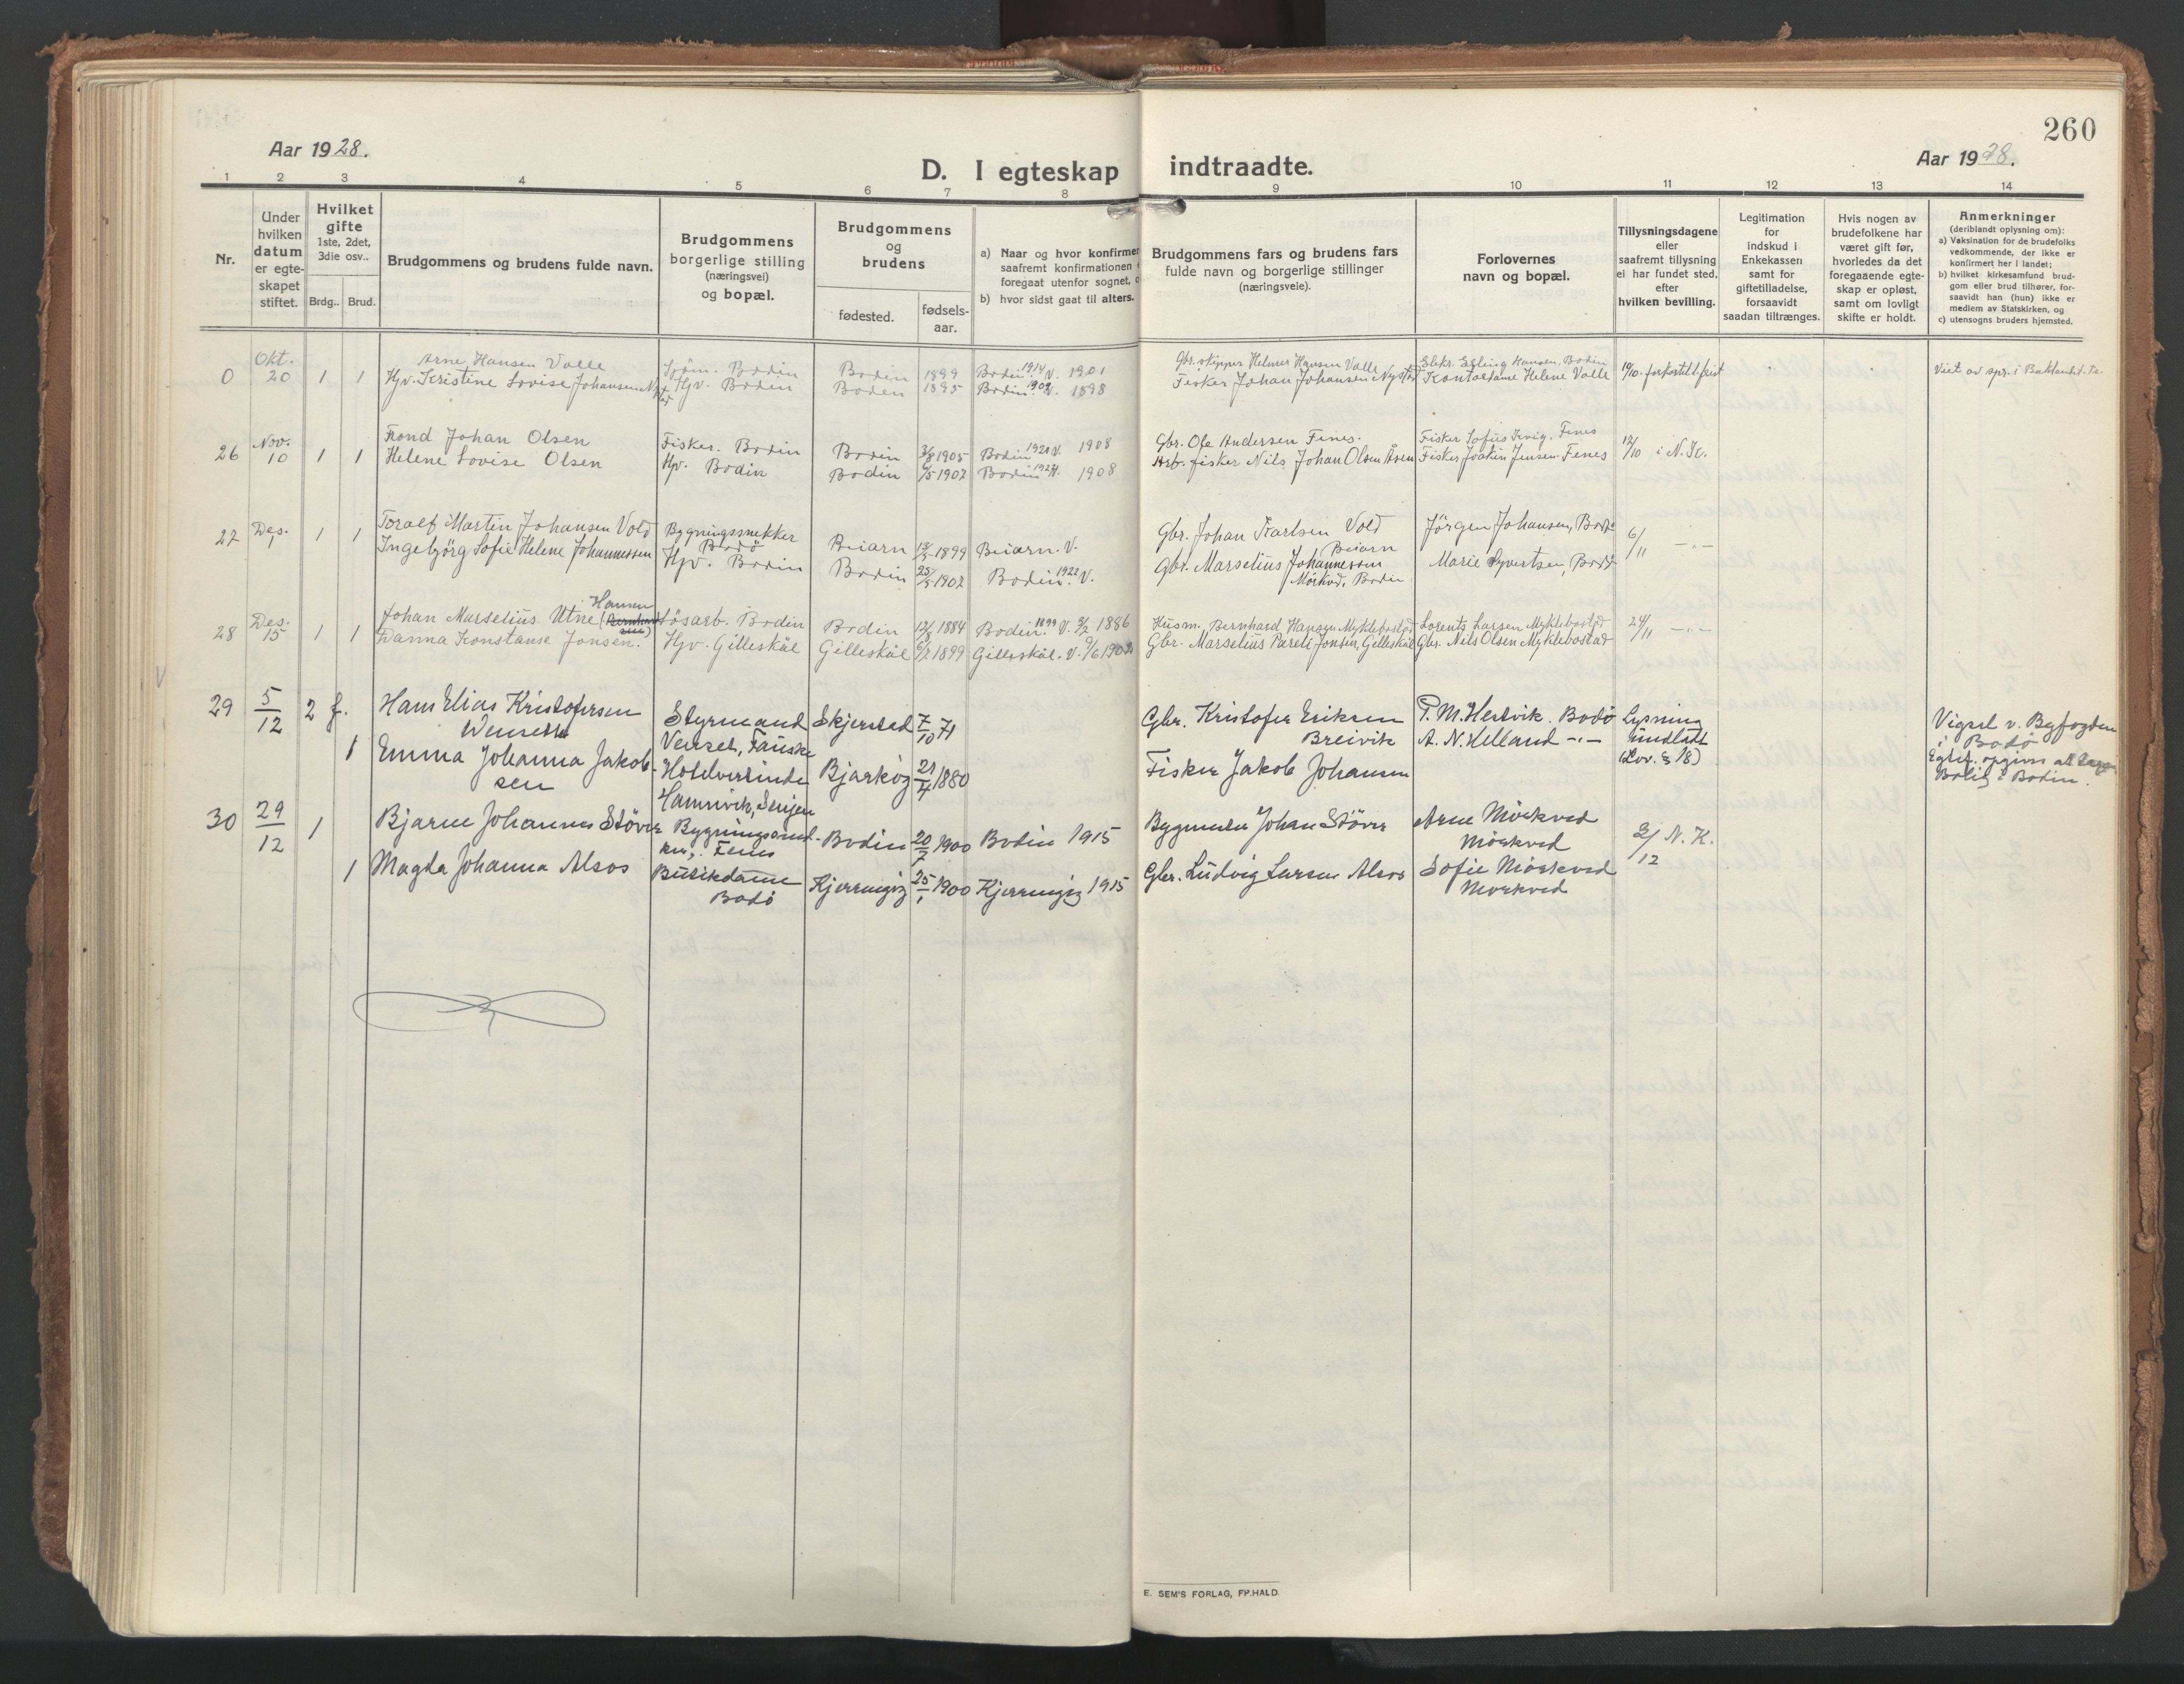 260
Aar 1928.
D. I egteskap indtraadte.
Aar 1928.
1 2 3 4 5 6 7 8 9 10 11 12 13 14
Nr.
Under
hvilken
datum
er egte-
skapet
stiftet.
Hvilket
gifte
1ste, 2det,
3die osv..
Brdg.. Brud.
Brudgommens og brudens fulde navn.
Brudgommens
borgerlige stilling
(næringsvei)
og bopæl.
Brudgommens
og
brudens
fødested.
fødsels-
aar.
a) Naar og hvor konfirmer
saafremt konfirmationen
foregaat utenfor sognet,
b) hvor sidst gaat til alters.
Brudgommens fars og brudens fars
fulde navn og borgerlige stillinger
(næringsveie).
Forlovernes
navn og bopæl.
Tillysningsdagene
eller
saafremt tillysning
ei har fundet sted,
efter
hvilken bevilling.
Legitimation
for
indskud i
Enkekassen
samt for
giftetilladelse,
forsaavidt
saadan tiltrænges.
Hvis nogen av
brudefolkene har
været gift før,
hvorledes da det
foregaaende egte-
skap er opløst,
samt om lovligt
skifte er holdt.
Anmerkninger
(deriblandt oplysning om):
a) Vaksination for de brudefolks
vedkommende, der ikke er
konfirmert her i landet;
b) hvilket kirkesamfund brud-
gom eller brud tilhører, for-
saavidt han (hun) ikke er
medlem av Statskirken, og
c) utensogns bruders hjemsted.
Okt. Arne Hansen Valle Bodin Bodin 1899 Bodin 1914 V. 1901 Gbr. skipper Helmer Hansen Valle Elekr. Erling Hansen, Bodin
0 20 1 1 Hpv. Kristine Lovise Johansen Nystad Hpv. Bodin Bodin 1895 Bodin 1909 V. 1898 Fisker Johan Johansen Nystad Kontordame Helene Valle 19/10
Nov. Trond Johan Olsen Fisker. Bodin Bodin 3/8 1905 Bodin 1920 V. 1908 Gbr. Ole Andersen Fenes. Fisker Sofus Fenes
26 10 1 1 Helene Lovise Olsen Hpv. Bodin Bodin 6/5 1907 Bodin 1908 Arb. fisker Nils Johan Olsen Åsen Fisker Joakim Jensen Fenes 12/10 i N. K.
27 Des. 1 1 1 Toralf Martin Johansen Vold Bygningssnekker
Bodö Beiarn 1899 Beiarn. V. Gbr. Johan Karlsen Vold
Beiarn Jörgen Johansen, Bodö 6/11 -"-
Ingebjörg Sofie Helene Johannessen Hpv. Bodin Bodin 25/5 1907 Bodin 1922 V. Gbr. Marselius Johannessen
Mörkved, Bodin Marie Syvertsen, Bodö
28 Des. 15 1 1 Johan Marselius Utne Hansen Lösarb. Bodin Bodin 12/8 1884 Bodin 1899 V. 1886 Husm. Bernhard Hansen Myklebostad Lorents Larsen Myklebostad 24/11 -"-
Danna Konstanse Jonsen. Hpv. Gilleskål Gilleskål 1899 Gilleskål. V. 1902 Gbr. Marselius Pareli Jonsen, Gilleskål Gbr. Nils Olsen Myklebostad
29 5/12 2 f. Hans Elias Kristofersen
Wenseth Styrmand
Venset, Fauske Skjerstad 7/10 71 Gbr. Kristofer Eriksen
Breivik P. M. Hestvik. Bodö
A. N. Helland -"- Lysning
undlatt
(Lov. § 18) Vigsel v. Byfogden
i Bodö
1 Emma Johanna Jakob-
sen Hotelvertinde
Hamnvik, Senjen Bjarköy 21/4 1880 Fisker Jakob Johansen Bolig i Bodin.
30 29/12 1 Bjarne Johannes Stöver Bygningssned-
ker, Fenes Bodin 20/7 1900 Bodin 1915 Bygmester Johan Stöver Arne Mörkved
Mörkved 2/12 N. K.
1 Magda Johanna Alsos Butikdame
Bodö Kjerringöy 25/1 1900 Kjerringöy 1915 Gbr. Ludvig Larsen Alsos Sofie Mörkved
Mörkved
E. SEM'S FORLAG, FP.HALD.